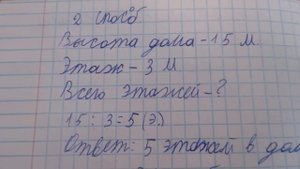 2 способ
Высота дома - 15 м.
Этаж - 3 м
Всего этажей - ?
15 : 3 = 5 (э.)
Ответ: 5 этажей в